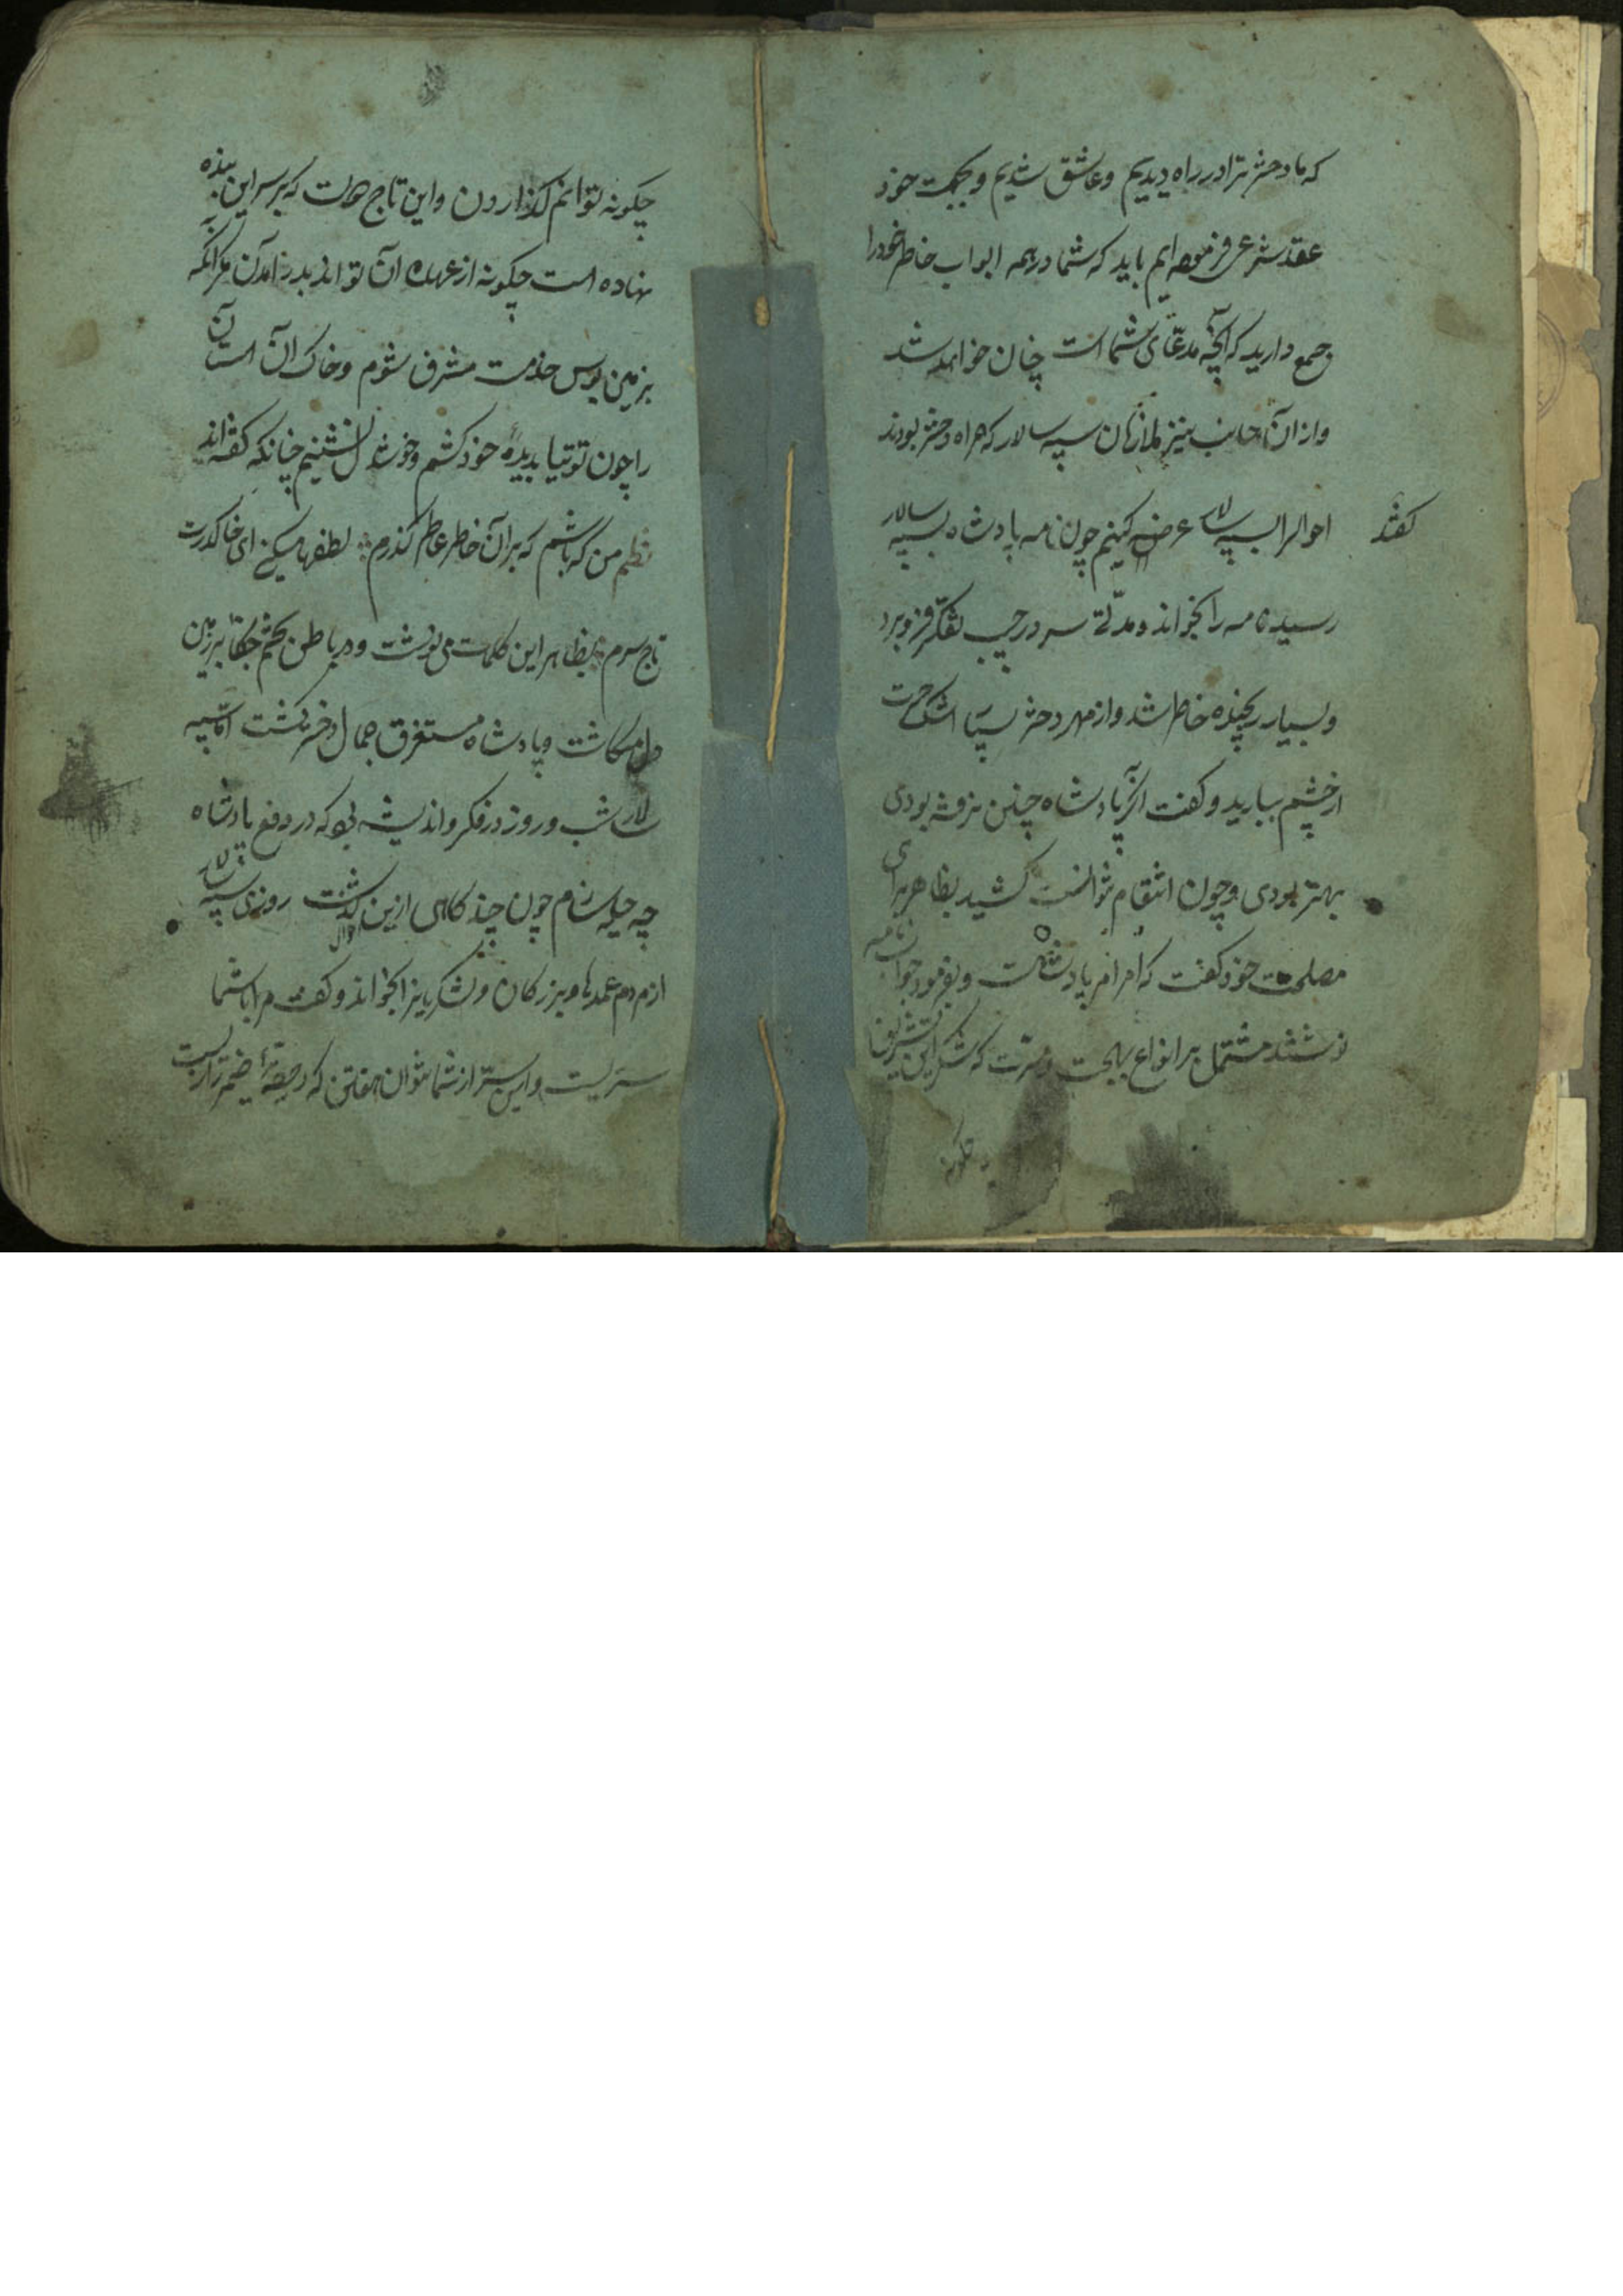 که ما دختر ترا در راه دیدیم و عاشق شدیم و بجهت خود
عقد شرعی فرموده ایم باید که شما در همه ابواب خاطر خود را
جمع دارید که آنچه مدعّای شما است چنان خواهد شد
و از آن جانب نیز ملازمان سپه سالار که همراه دختر بودند
گفتند
احوال را بسپه سالار عرض کنیم چون نامه پادشاه بسپه سالار
رسید نامه را بخواند و مدّتی سر در جیب تفکّر فرو برد
و بسیار رنجیده خاطر شد و از مهر دختر اشک حسرت
از چشم ببارید و گفت اگر پادشاه چنین نرفته بودی
بهتر بودی و چون انتقام نتوانست کشید بظاهر برای
مصلحت خود گفت که امر امر پادشاهست و بفرمود جواب نامه
نوشتند مشتمل بر انواع بهجت و مسرّت که شکر این تشریفها
چگونه
چگونه توانم گذاردن و این تاج دولت که بر سر این بنده
نهاده است چگونه از عهده آن تواند بدر آمدن مگر آنکه
بزمین بوس خدمت مشرف شوم و خاک آن آستان
را چون توتیا بدیده خود کشم و خوشدل نشینم چنانکه گفته اند
نظم من که باشم که بر آن خاطر عاطر گذرم لطفها میکنی ای خاک درت
تاج سرم بظاهر این کلمات می نوشت و در باطن تخم جفا بر زمین
دل میکاشت و پادشاه مستغرق جمال دختر گشت امّا سپه
سالار شب و روز در فکر و اندیشه بود که در دفع پادشاه
چه حیله سازم چون چند گاهی ازین گذشت روزی سپه سالار
از مردم عمدها و بزرگان و لشکریانرا بخواند و گفت مرا با شما
سرّیست و این سرّ از شما نتوان نهفتن که